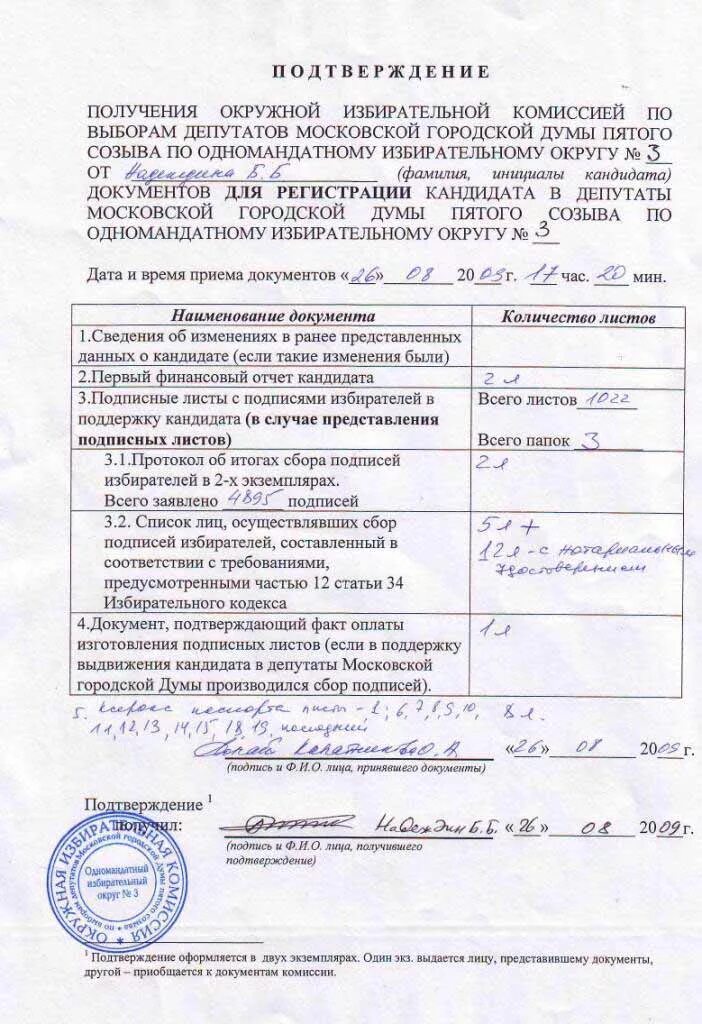 ПОДТВЕРЖДЕНИЕ
ПОЛУЧЕНИЯ ОКРУЖНОЙ ИЗБИРАТЕЛЬНОЙ КОМИССИЕЙ ПО
ВЫБОРАМ ДЕПУТАТОВ МОСКОВСКОЙ ГОРОДСКОЙ ДУМЫ ПЯТОГО
СОЗЫВА ПО ОДНОМАНДАТНОМУ ИЗБИРАТЕЛЬНОМУ ОКРУГУ № 3
ОТ Надеждина Б.Б (фамилия, инициалы кандидата)
ДОКУМЕНТОВ ДЛЯ РЕГИСТРАЦИИ КАНДИДАТА В ДЕПУТАТЫ
МОСКОВСКОЙ ГОРОДСКОЙ ДУМЫ ПЯТОГО СОЗЫВА ПО
ОДНОМАНДАТНОМУ ИЗБИРАТЕЛЬНОМУ ОКРУГУ № 3
Дата и время приема документов «26» 08 2009г. 17 час. 20 мин.
Наименование документа Количество листов
1.Сведения об изменениях в ранее представленных
данных о кандидате (если такие изменения были)
2.Первый финансовый отчет кандидата 2 л
3.Подписные листы с подписями избирателей в Всего листов 1022
поддержку кандидата (в случае представления
подписных листов) Всего папок 3
3.1.Протокол об итогах сбора подписей 2 л
избирателей в 2-х экземплярах.
Всего заявлено 4895 подписей
3.2. Список лиц, осуществлявших сбор 5 л +
подписей избирателей, составленный в 12 л - с нотариальным
соответствии с требованиями, удостоверением
предусмотренными частью 12 статьи 34
Избирательного кодекса
4.Документ, подтверждающий факт оплаты 1 л
изготовления подписных листов (если в поддержку
выдвижения кандидата в депутаты Московской
городской Думы производился сбор подписей).
5. Ксерокс паспорта 6, 7, 8, 9, 10, 8 л.
11, 12, 13, 14, 15, 18, 19, последний
О.А «26» 08 2009г.
(подпись и Ф.И.О. лица, принявшего документы)
Подтверждение 1
получил: Надеждин Б.Б. «26» 08 2009г.
(подпись и Ф.И.О. лица, получившего
подтверждение)
ОКРУЖНАЯ ИЗБИРАТЕЛЬНАЯ КОМИССИЯ
по выборам депутатов Московской городской Думы пятого созыва
Одномандатный
избирательный
округ № 3
1 Подтверждение оформляется в двух экземплярах. Один экз. выдается лицу, представившему документы,
другой – приобщается к документам комиссии.